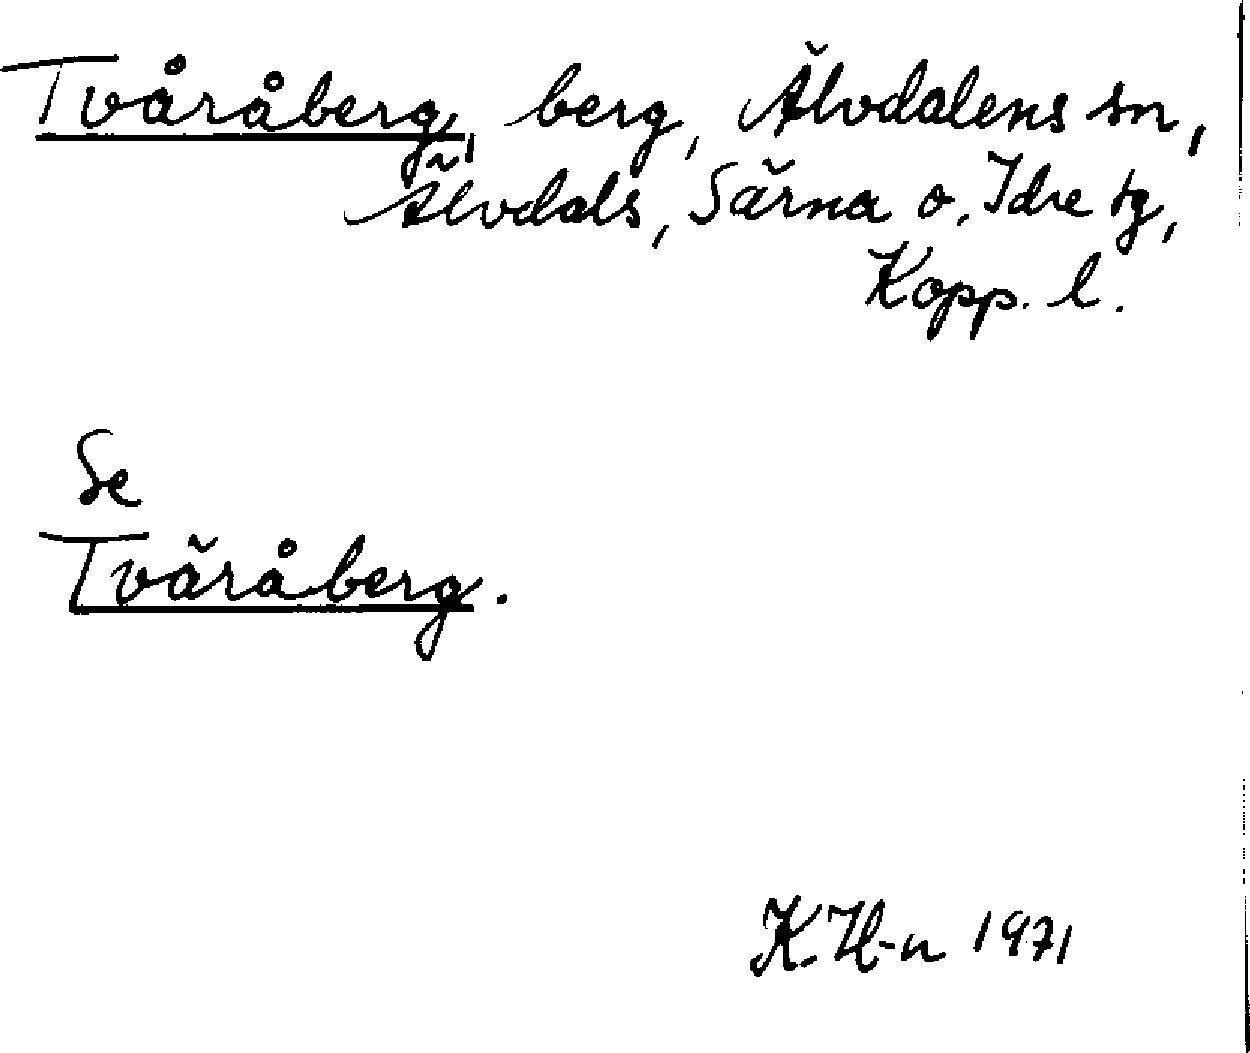 Tvåråberg, berg, Älvdalens sn,
Älvdals, Särna o. Idre tg,
Kopp. l.
Se
Tväråberg.
K. H-n 1971